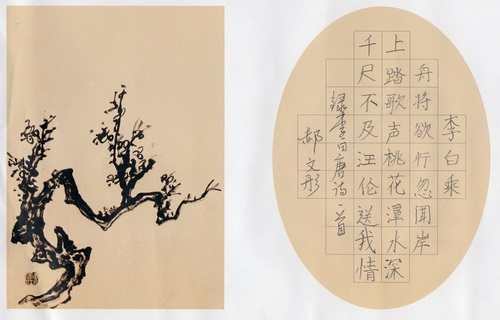 李白乘
舟将欲行忽闻岸
上踏歌声桃花潭水深
千尺不及汪伦送我情
録李白唐诗一首
郝文彤